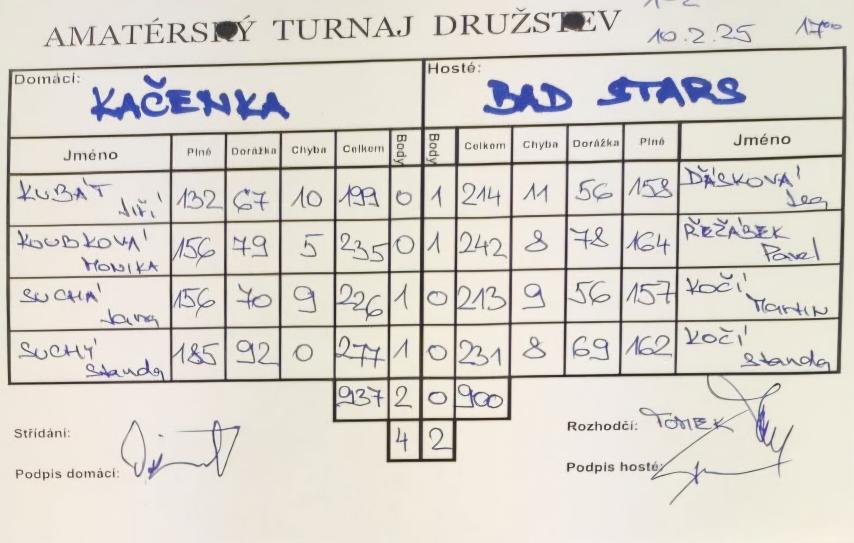 1-2
AMATÉRSKÝ TURNAJ DRUŽSTEV 10.2.25 17⁰⁰
Domácí: Hosté:
KAČENKA BAD STARS
Jméno Plné Dorážka Chyba Celkem Body Body Celkem Chyba Dorážka Plné Jméno
KUBÁT Jiří 132 67 10 199 0 1 214 11 56 158 ĎÁSKOVÁ
KOUBKOVÁ MONIKA 156 79 5 235 0 1 242 8 78 164 ŘEŽÁBEK Pavel
SUCHÁ Jana 156 70 9 226 1 0 213 9 56 157 KOČÍ Martin
SUCHÝ Standa 185 92 0 277 1 0 231 8 69 162 KOČÍ Standa
937 2 0 900
4 2
Střídání: Rozhodčí: TOMEK
Podpis domácí: Podpis hosté: